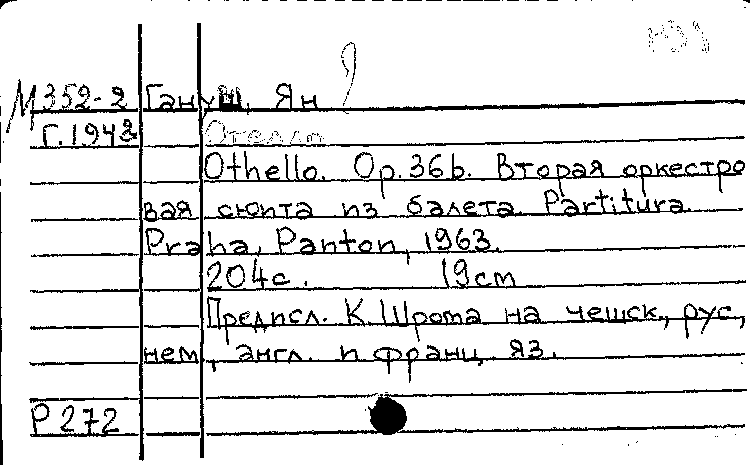 М352-2 Гануш, Ян
Г.1943 Отелло
Othello. Op.36b. Вторая оркестро
вая сюита из балета. Partitura.
Praha, Panton, 1963.
204с. 19cm
Предисл. К.Шрома на чешск., рус.,
нем., англ. и франц. яз.
Р272